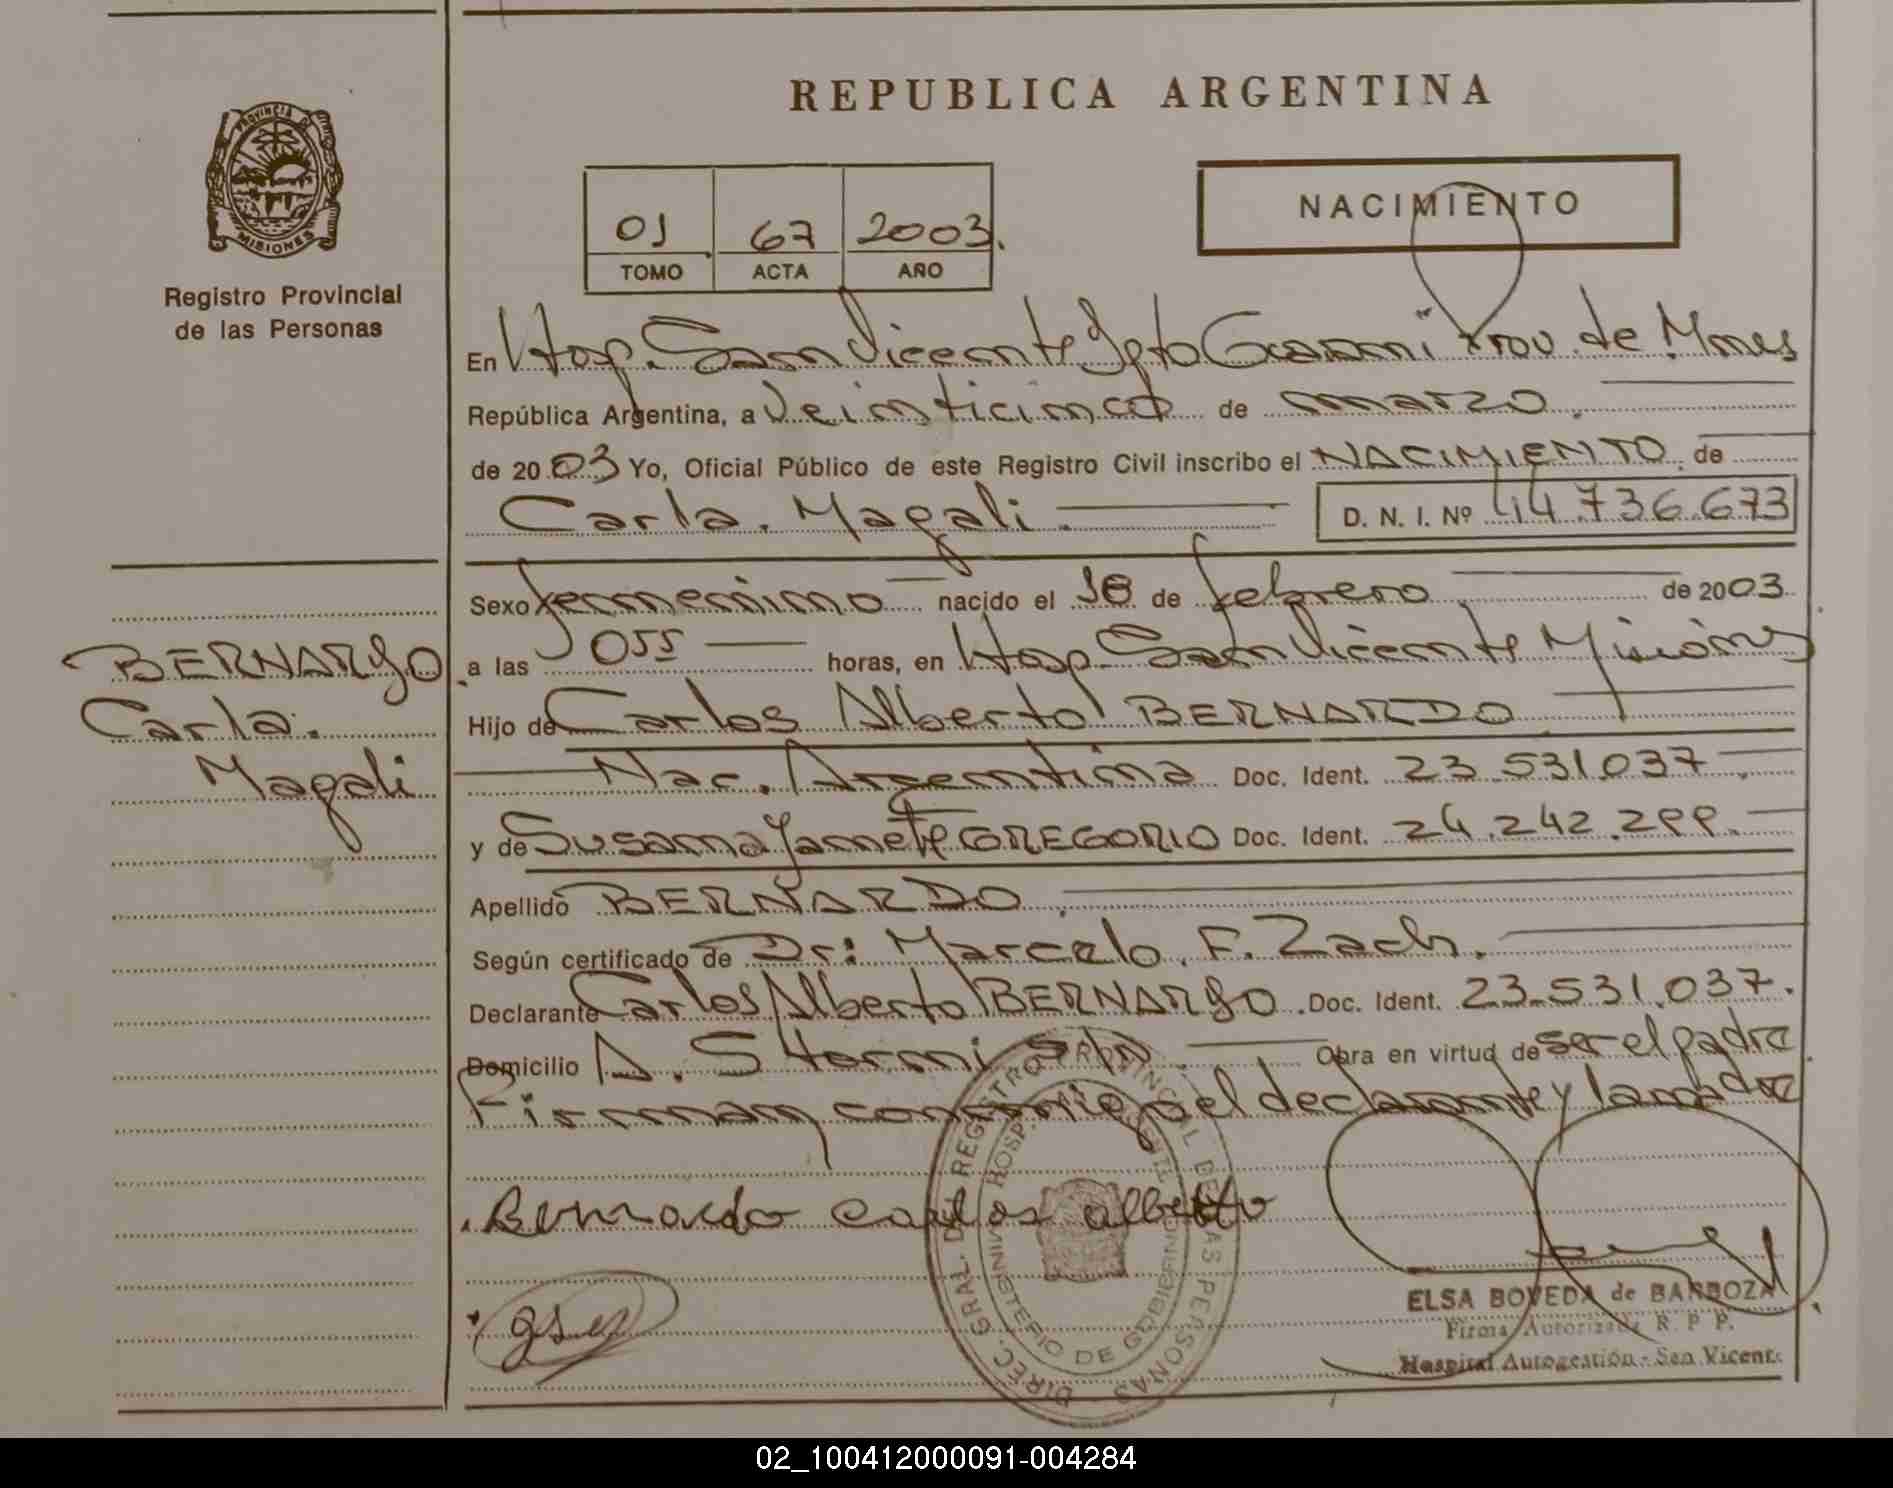 REPUBLICA ARGENTINA
PROVINCIA DE
MISIONES
Registro Provincial
de las Personas
NACIMIENTO
01 67 2003.
TOMO ACTA AÑO
En Hosp. San Vicente Dpto Guaraní Prov. de Mnes
República Argentina, a Veinticinco de marzo.
de 2003 Yo, Oficial Público de este Registro Civil inscribo el NACIMIENTO de
Carla Magali. D. N. I. Nº 44.736.673
Sexo femenino nacido el 18 de febrero de 2003
a las 055 horas, en Hosp. San Vicente Misiones
Hijo de Carlos Alberto BERNARDO
Nac. Argentina Doc. Ident. 23 531 037
y de Susana Janete GREGORIO Doc. Ident. 24.242.299.
Apellido BERNARDO.
Según certificado de Dr: Marcelo F. Zach.
Declarante Carlos Alberto BERNARDO. Doc. Ident. 23.531.037.
Domicilio A. Storni S/N Obra en virtud de ser el padre
Firman conmigo el declarante y la madre
BERNARDO
Carla.
Magali
Bernardo Carlos alberto
DIREC. GRAL. DEL REGISTRO PROVINCIAL DE LAS PERSONAS
HOSP. VICENTE
MINISTERIO DE GOBIERNO
ELSA BOVEDA de BARBOZA
Firma Autorizada R. P. P.
Hospital Autogestión - San Vicente
02_100412000091-004284